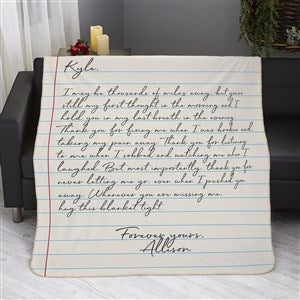 Kyle,
I may be thousands of miles away, but you're
still my first thought in the morning and I
hold you in my last breath in the evening.
Thank you for fixing me when I was broken and
taking my pain away. Thank you for listening
to me when I sobbed and watching me when I
laughed. But most importantly, thank you for
never letting me go, even when I pushed you
away. Whenever you are missing me,
hug this blanket tight.
Forever yours,
Allison